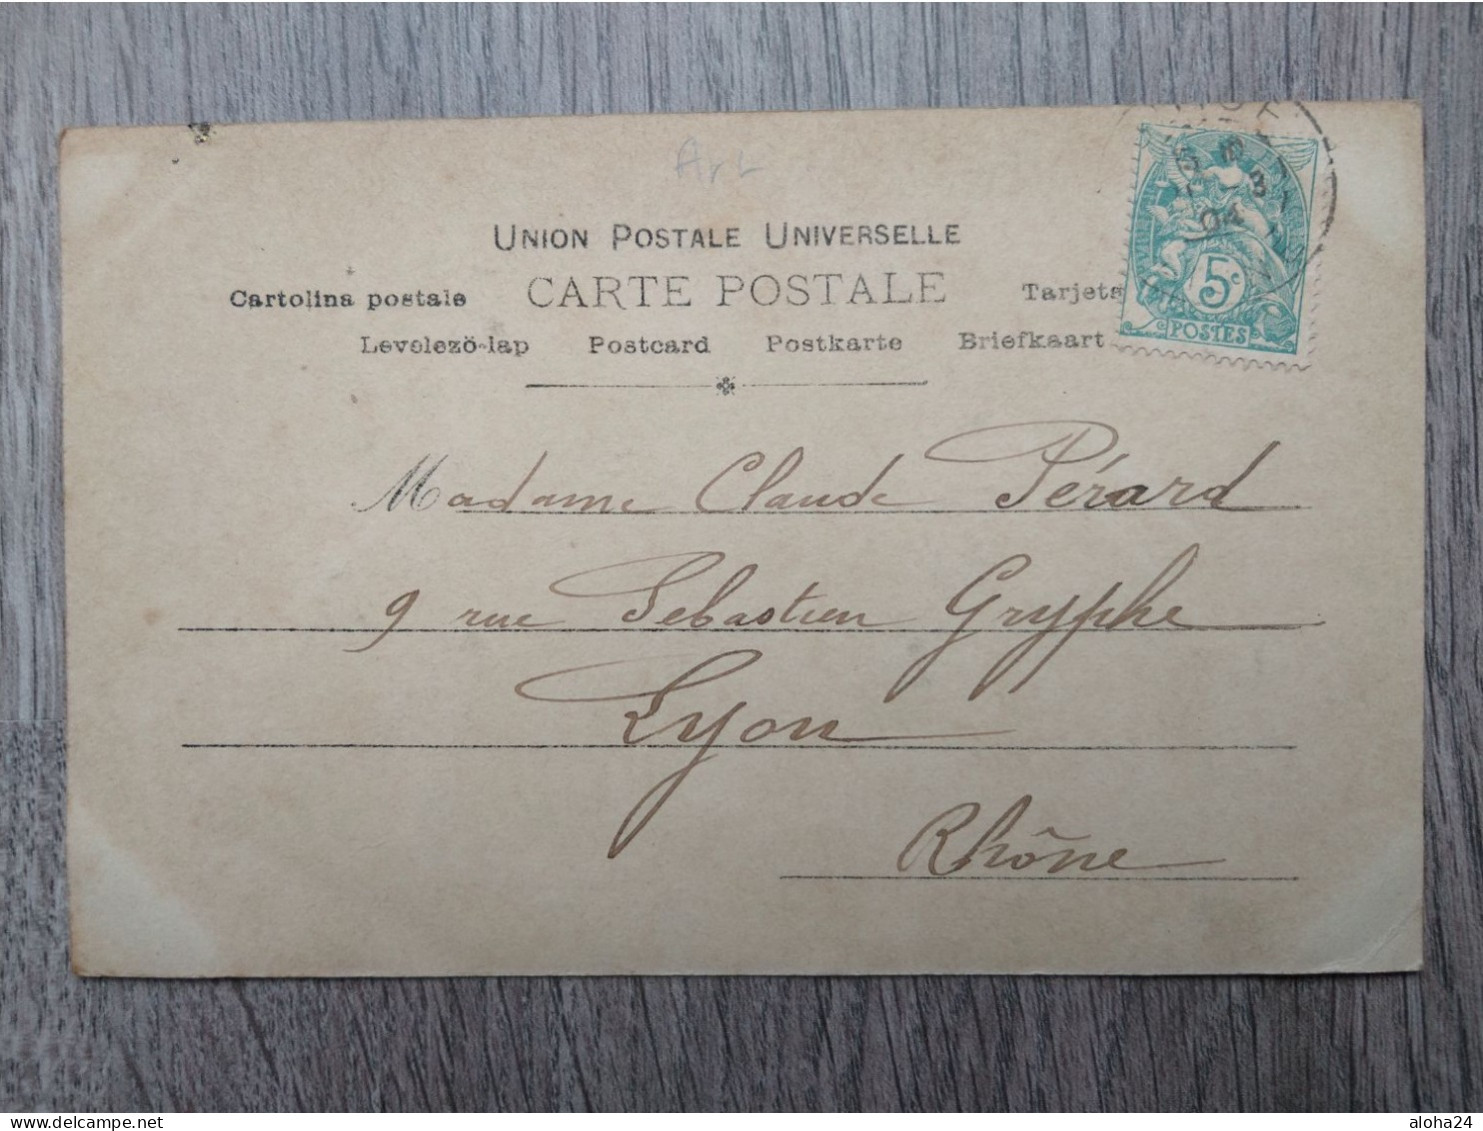 Art
UNION POSTALE UNIVERSELLE
CARTE POSTALE
Cartolina postale
Tarjeta
Levelező-lap Postcard Postkarte Briefkaart
5c
POSTES
3
04
Madame Claude Pérard
9 rue Sebastien Gryphe
Lyon
Rhône
www.delcampe.net
aloha24